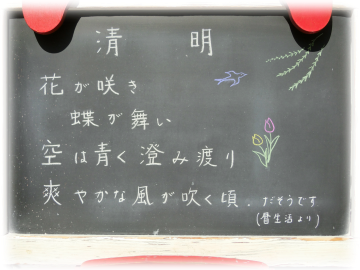 清明
花が咲き
蝶が舞い
空は青く澄み渡り
爽やかな風が吹く頃.だそうです
(暦生活より)